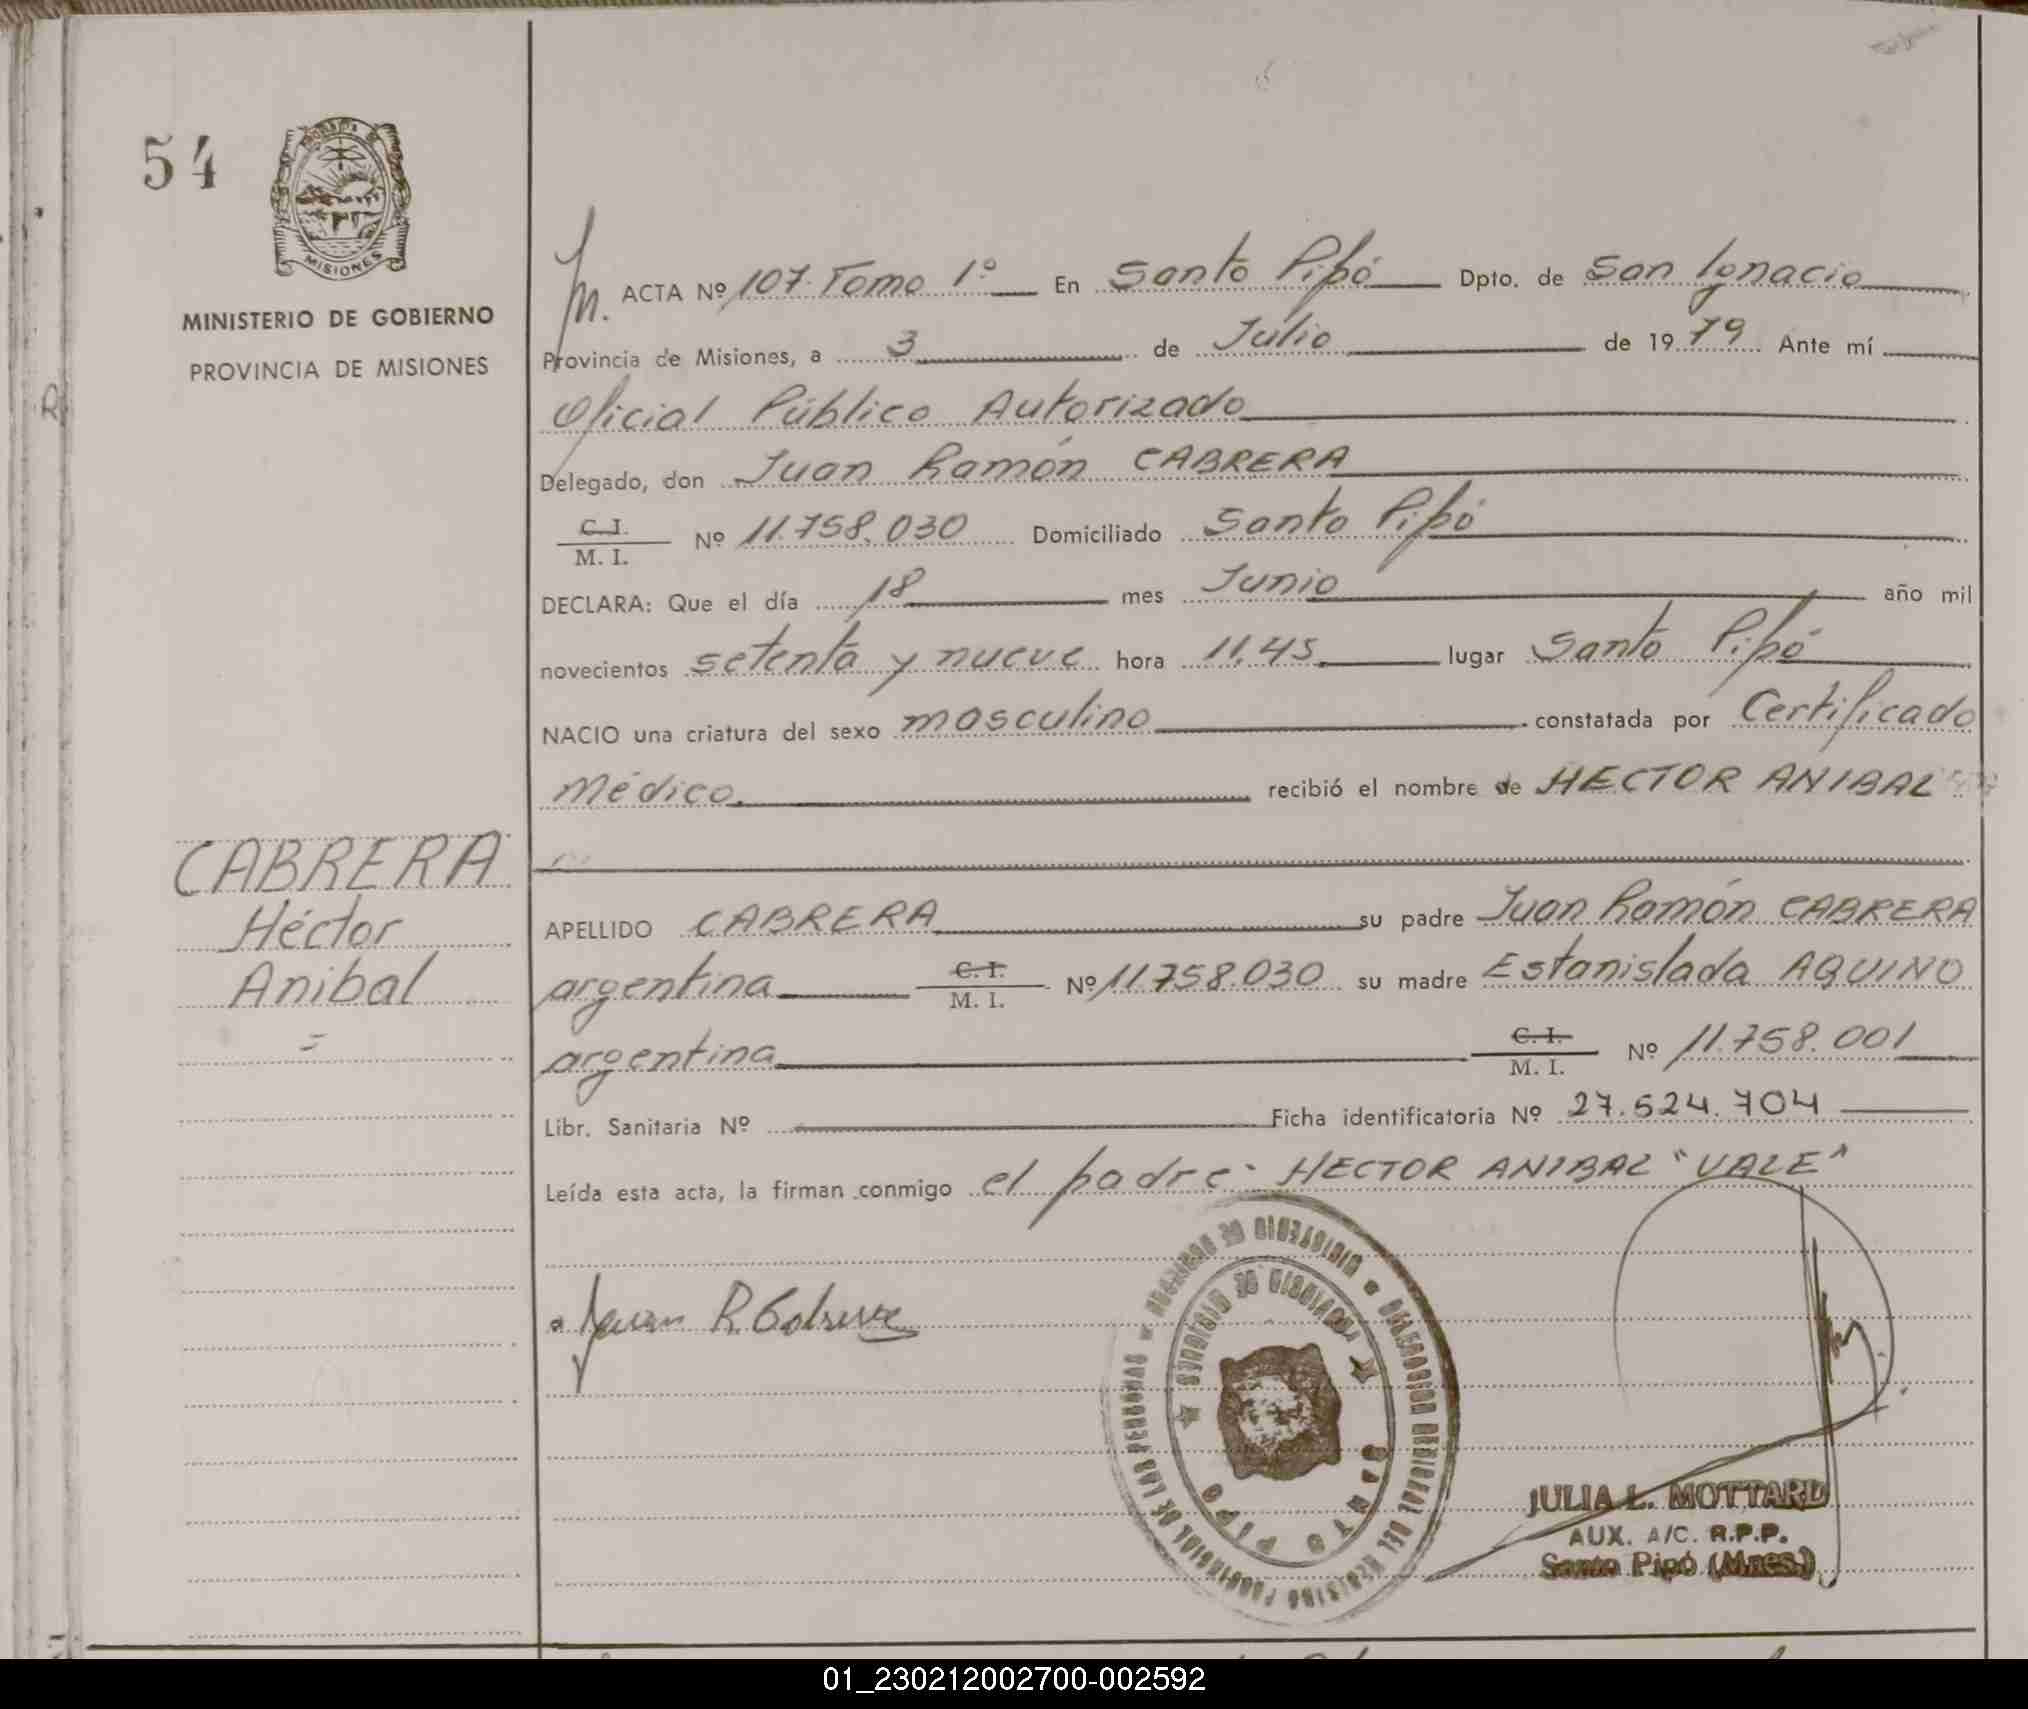 54
MISIONES
MINISTERIO DE GOBIERNO
PROVINCIA DE MISIONES
CABRERA
Héctor
Anibal
=
M. ACTA Nº 107. Tomo 1º En Santo Pipó Dpto. de San Ignacio
Provincia de Misiones, a 3 de Julio de 1979 Ante mí
Oficial Público Autorizado
Delegado, don Juan Ramón CABRERA
C.I.
M. I. Nº 11.758.030 Domiciliado Santo Pipó
DECLARA: Que el día 18 mes Junio año mil
novecientos setenta y nueve hora 11,45 lugar Santo Pipó
NACIO una criatura del sexo masculino constatada por Certificado
Médico. recibió el nombre de HECTOR ANIBAL
APELLIDO CABRERA su padre Juan Ramón CABRERA
argentina C. I. M. I. Nº 11.758.030 su madre Estanislada AQUINO
argentina C. I. M. I. Nº 11.758.001
Libr. Sanitaria Nº Ficha identificatoria Nº 27.524.704
Leída esta acta, la firman conmigo el padre- HECTOR ANIBAL "VALE"
Juan R. Cabrera
PROVINCIA DE MISIONES
SANTO PIPO
JULIA L. MOTTARD
AUX. A/C. R.P.P.
Santo Pipó (Mnes.)
01_230212002700-002592